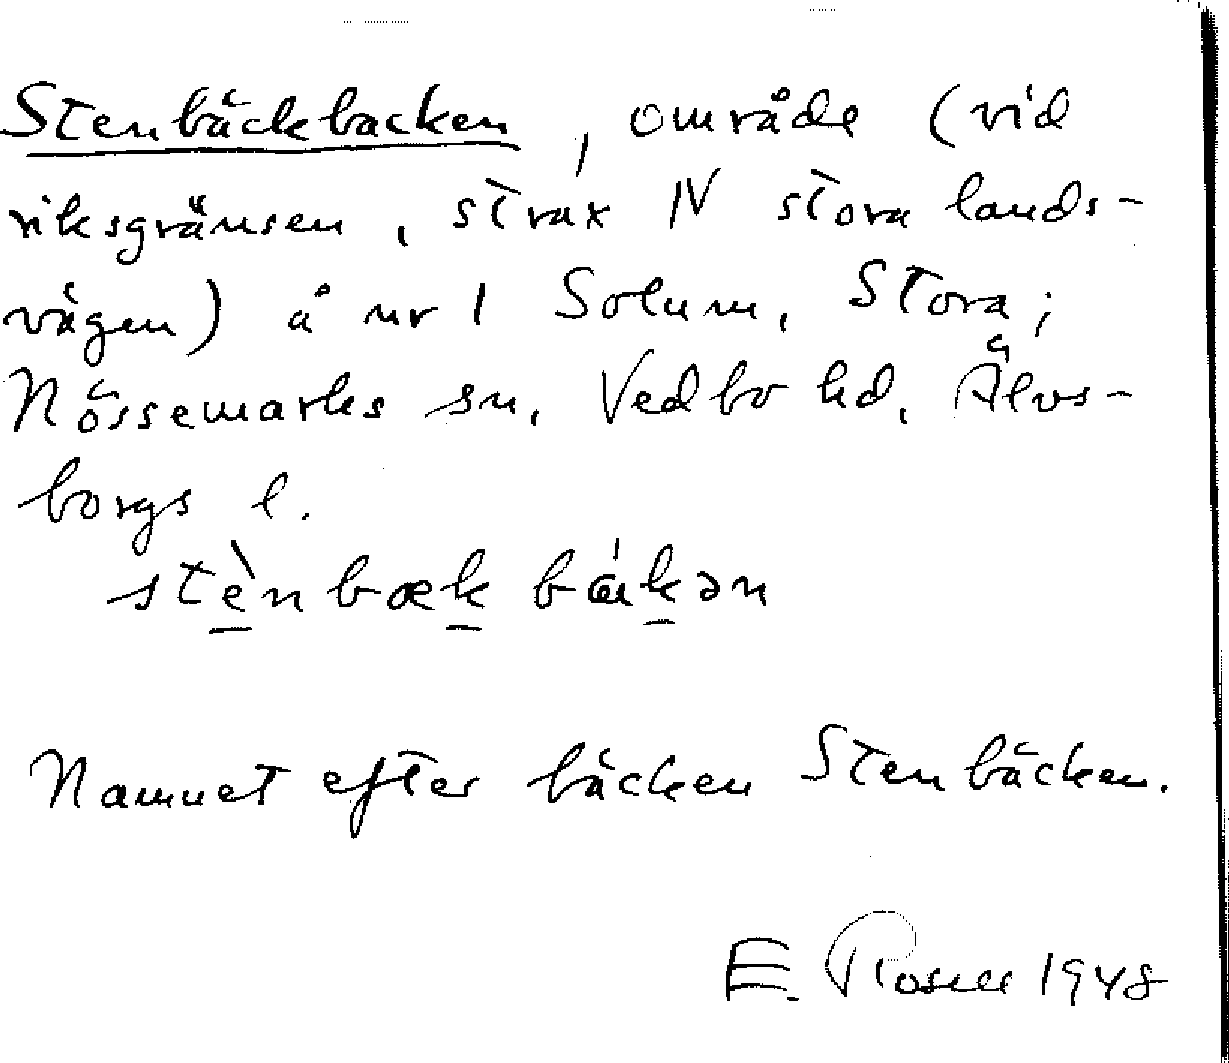 Stenbäckbacken, område (vid
riksgränsen, strax N stora lands-
vägen) å nr 1 Solum, Stora;
Nössemarks sn, Vedbo hd, Älvs-
borgs l.
stèn bæk bákən
Namnet efter bäcken Stenbäcken.
E. Rosell 1948